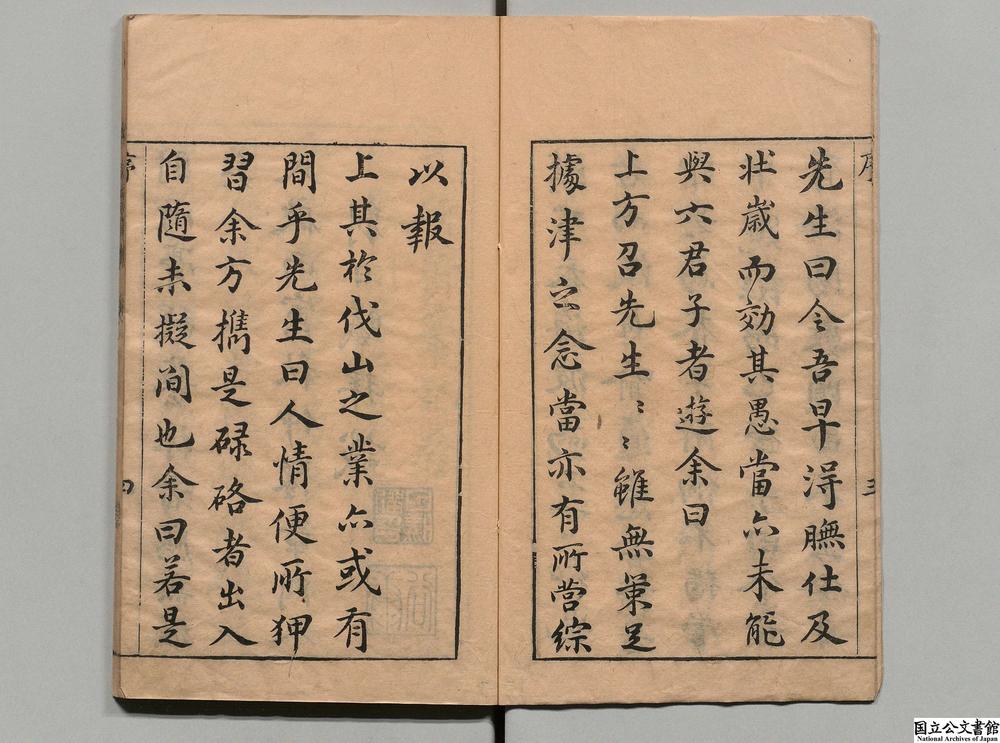 先生曰令吾早淂膴仕及
壯歲而効其愚當亦未能
與六君子者遊余曰
上方召先生〻〻雖無策足
據津之念當亦有所営綜
以報
上其於伐山之業亦或有
間乎先生曰人情便所狎
習余方攜是碌硌者出入
自隨未擬間也余曰若是
序
三
序
四
国立公文書館
National Archives of Japan